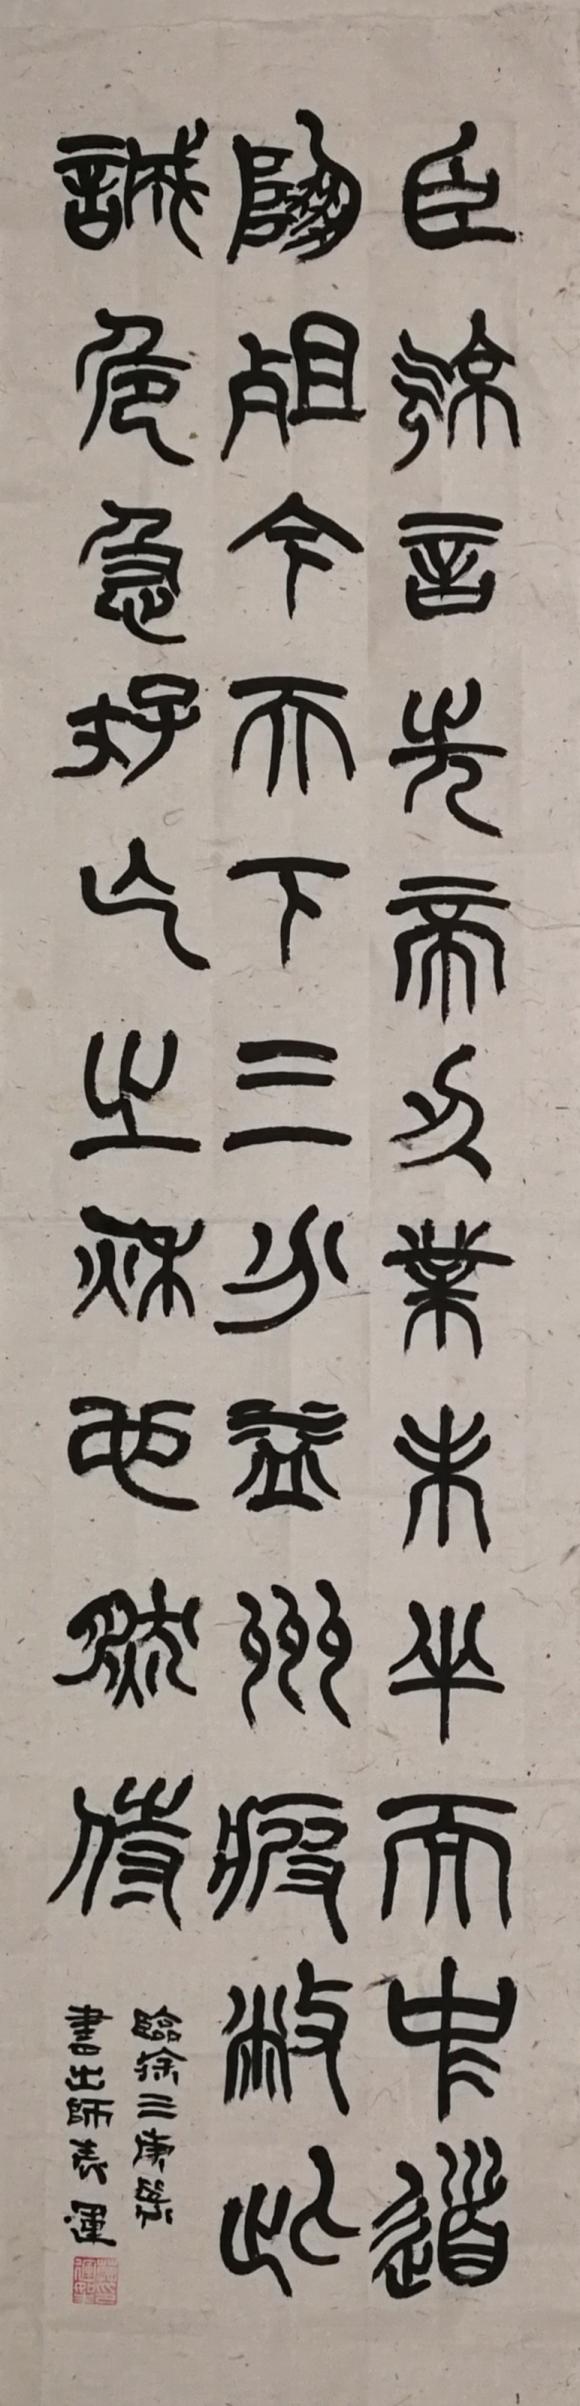 臣亮言先帝創業未半而中道
崩殂今天下三分益州疲敝此
誠危急存亡之秋也然侍
臨徐三庚篆
書出師表 運